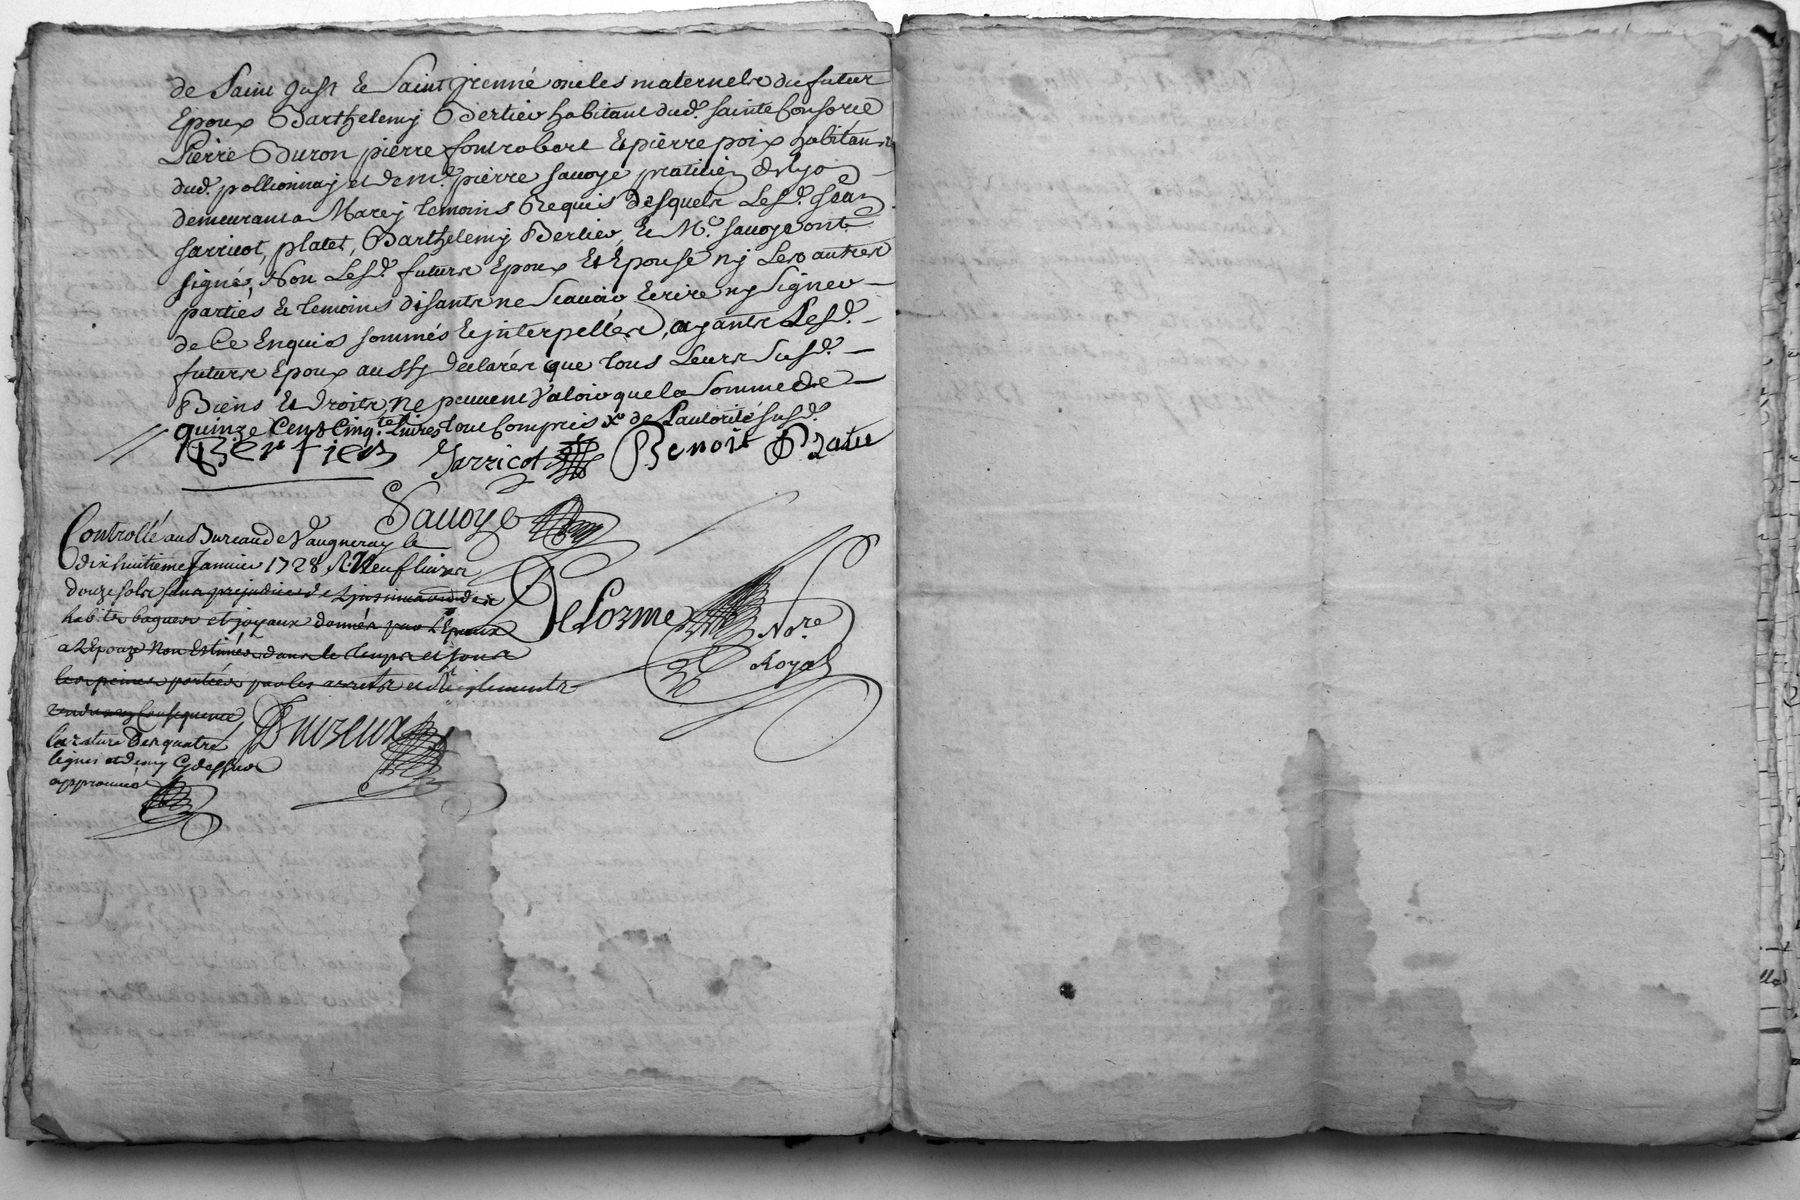 de Saint Just & Saint Jrenné oncles maternels du futur
Epoux Barthelemy Bertier habitant dud. sainte Consorce
Pierre Buron pierre fontrobert & pierre poix habitans
dud. pollionnay et de m.e pierre sauoye praticien de lyon
demeurant a Marcy temoins Requis desquels Les d. Jean
Jarricot, platet, Barthelemy Bertier, & M.e sauoye ont
signés, Non Les d. futurs Epoux & Epouse ny Les autres
parties & temoins disants ne scauoir Ecrire ny signer
de Ce Enquis sommés & jnterpellés, ayants Les d.
futurs Epoux aussy declarés que tous Leurs sus d.
Biens & droits, ne peuuent Valoir que la somme de
quinze Cens Cinq.te Liures tout Compris de L'autorité sus d.
Bertier Jarricot Benoit Platet
Sauoye
Controllé au Bureau de Vaugneray le
dix huitieme Januier 1728 R. Neuf liures
douze sols sans prejudice de L'jnsinuation des
habits bagues et joyaux donnés par L'Epoux
a L'Epouze Non Estimés dans le temps et sous
les peines portées par les arrests et Reglements
rendus en Consequence,
la rature des quatre
lignes et demy Cy dessus
approuuée
Delorme No.re
Royal